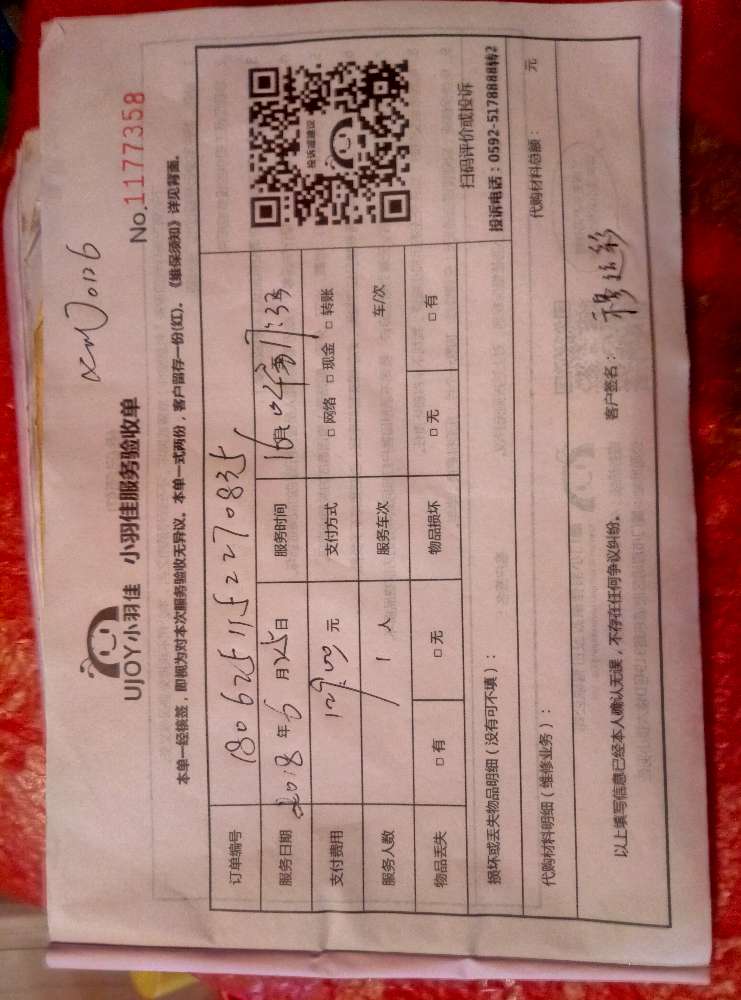 UJOY小羽佳 小羽佳服务验收单
No.1177358
本单一经核签，即视为对本次服务验收无异议。本单一式两份，客户留存一份(红)。《维保须知》详见背面。
订单编号 1806251152270835
服务日期 2018年6月25日 服务时间
支付费用 元 支付方式 □ 网络 □ 现金 □ 转账
服务人数 1 人 服务车次 车/次
物品丢失 □ 有 □ 无 物品损坏 □ 无 □ 有
投诉或建议
扫码评价或投诉
投诉电话：0592-5178888转2
损坏或丢失物品明细（没有可不填）：
代购材料明细（维修业务）： 代购材料总额： 元
以上填写信息已经本人确认无误，不存在任何争议纠纷。 客户签名：